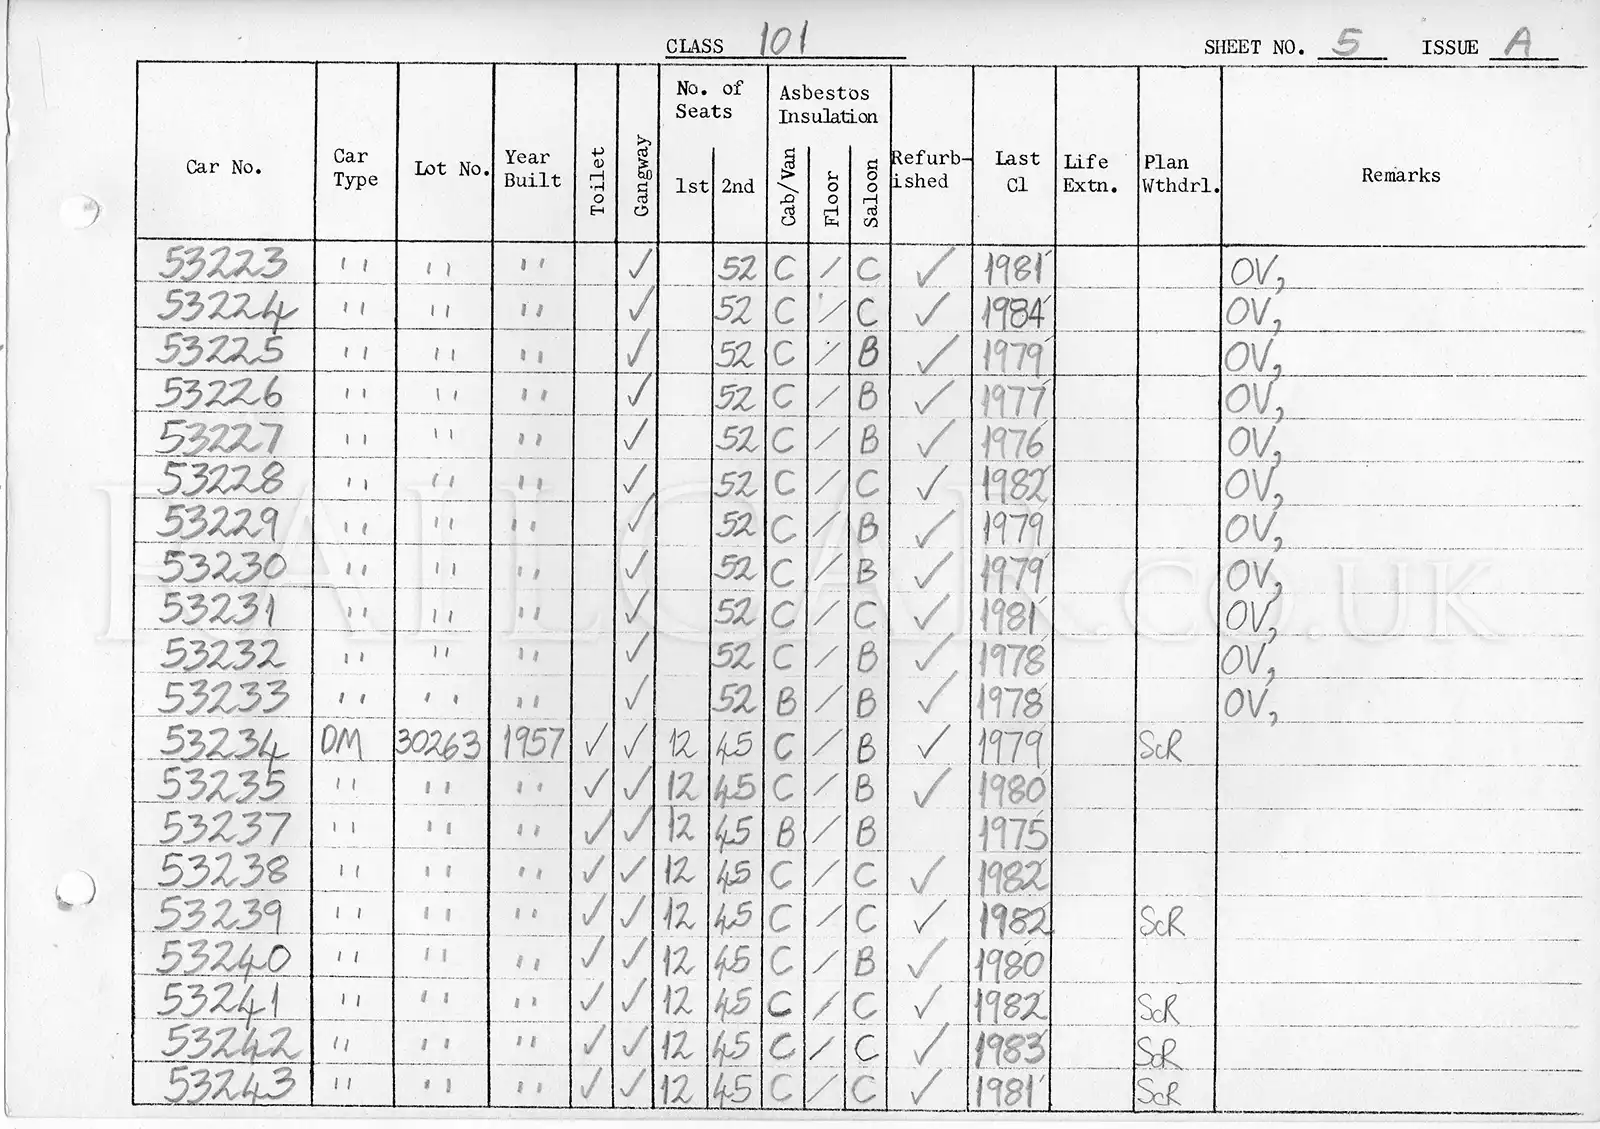 CLASS 101 SHEET NO. 5 ISSUE A
Car No. Car Type Lot No. Year Built Toilet Gangway No. of Seats 1st 2nd Asbestos Insulation Cab/Van Floor Saloon Refurb-ished Last Cl Life Extn. Plan Wthdrl. Remarks
53223 " " " ✓ 52 C / C ✓ 1981 OV,
53224 " " " ✓ 52 C / C ✓ 1984 OV,
53225 " " " ✓ 52 C / B ✓ 1979 OV,
53226 " " " ✓ 52 C / B ✓ 1977 OV,
53227 " " " ✓ 52 C / B ✓ 1976 OV,
53228 " " " ✓ 52 C / C ✓ 1982 OV,
53229 " " " ✓ 52 C / B ✓ 1979 OV,
53230 " " " ✓ 52 C / B ✓ 1979 OV,
53231 " " " ✓ 52 C / C ✓ 1981 OV,
53232 " " " ✓ 52 C / B ✓ 1978 OV,
53233 " " " ✓ 52 B / B ✓ 1978 OV,
53234 DM 30263 1957 ✓ ✓ 12 45 C / B ✓ 1979 ScR
53235 " " " ✓ ✓ 12 45 C / B ✓ 1980
53237 " " " ✓ ✓ 12 45 B / B 1975
53238 " " " ✓ ✓ 12 45 C / C ✓ 1982
53239 " " " ✓ ✓ 12 45 C / C ✓ 1982 ScR
53240 " " " ✓ ✓ 12 45 C / B ✓ 1980
53241 " " " ✓ ✓ 12 45 C / C ✓ 1982 ScR
53242 " " " ✓ ✓ 12 45 C / C ✓ 1983 ScR
53243 " " " ✓ ✓ 12 45 C / C ✓ 1981 ScR
RAILCAR.CO.UK